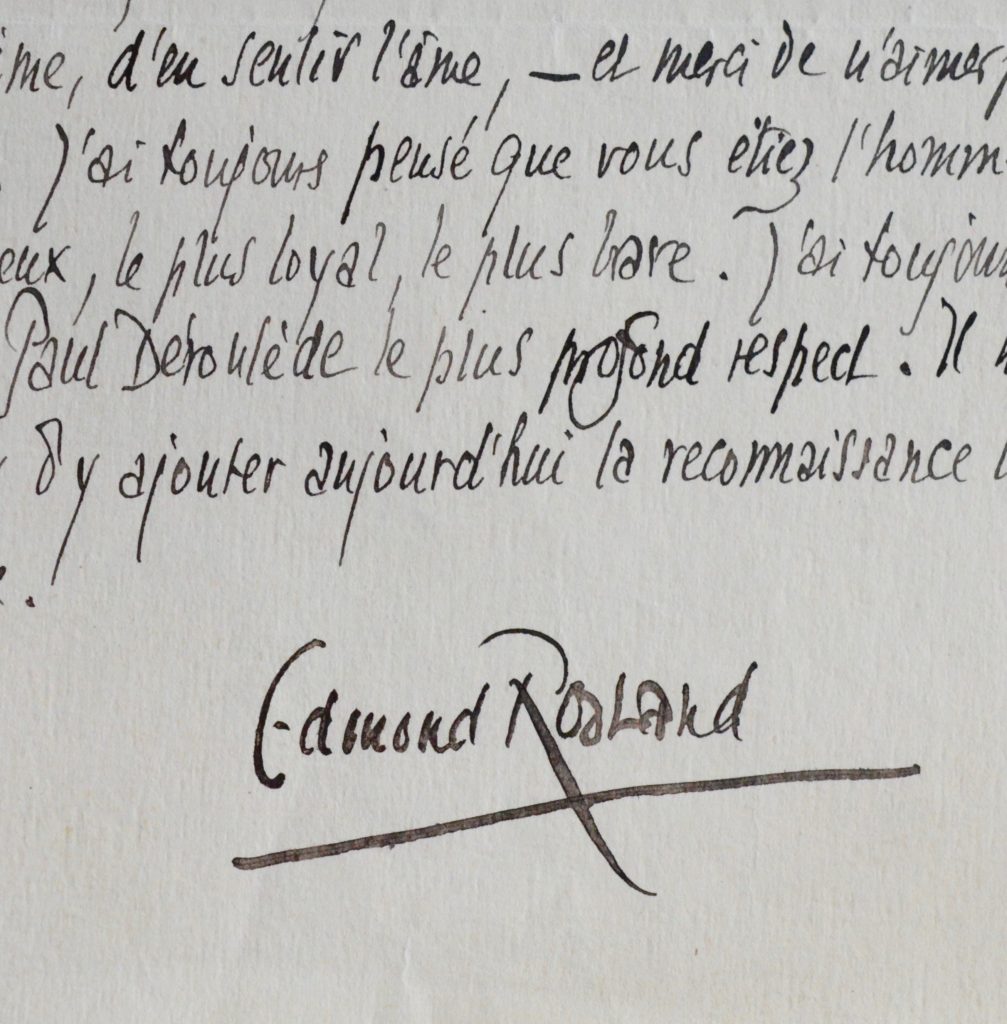 ime, d'en sentir l'âme, — et merci de n'aimer
J'ai toujours pensé que vous étiez l'homm
eux, le plus loyal, le plus brave. J'ai toujou
Paul Déroulède le plus profond respect. Il
d'y ajouter aujourd'hui la reconnaissance
Edmond Rostand